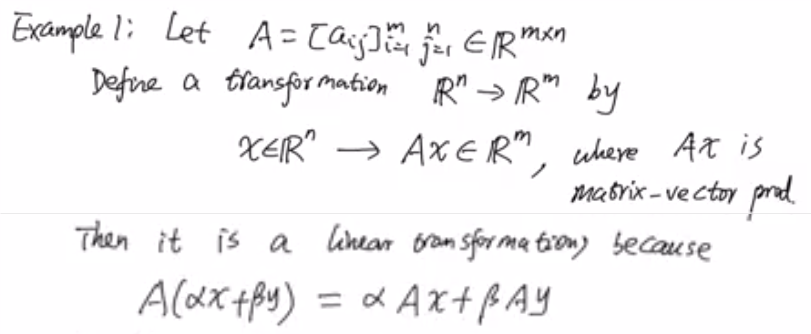 Example 1: Let A = [aij]i=1^m j=1^n ∈ ℝ^m×n
Define a transformation ℝ^n → ℝ^m by
x∈ℝ^n → Ax ∈ ℝ^m, where Ax is
matrix-vector prod.
Then it is a linear transformation, because
A(αx+βy) = αAx+βAy